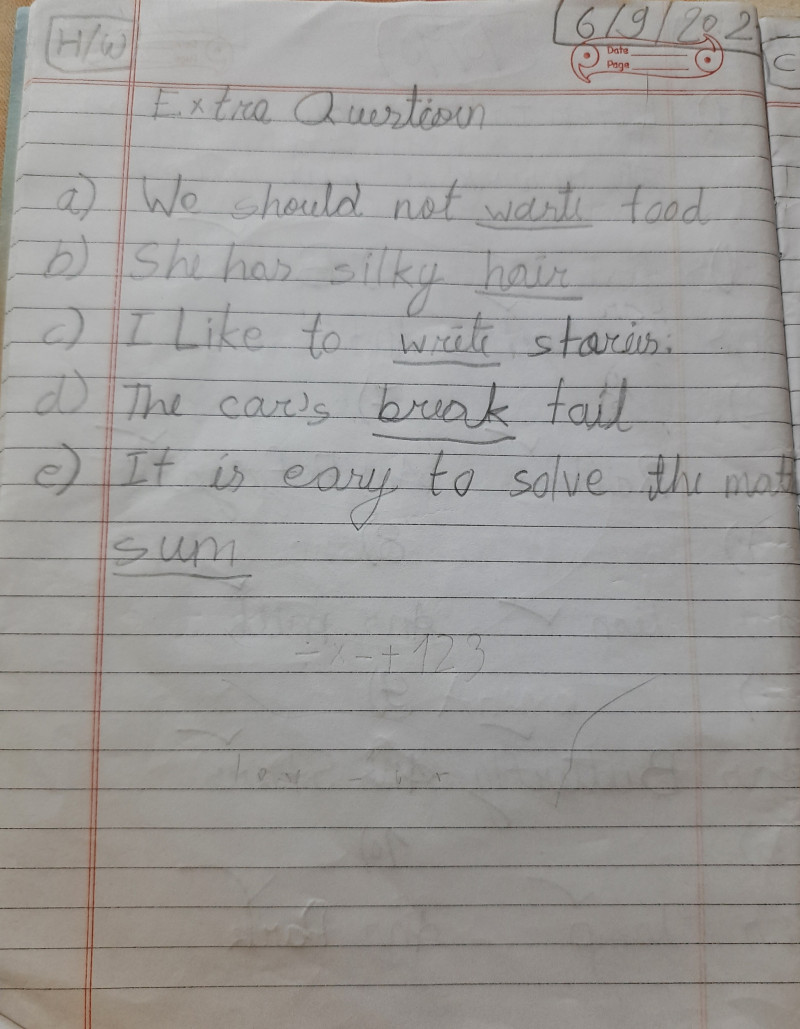 H/W
6/9/202
Date
Page
Extra Question
a) We should not waste food
b) She has silky hair
c) I Like to write stories.
d) The car's break fail
e) It is easy to solve the mat
sum
÷ x - + 123